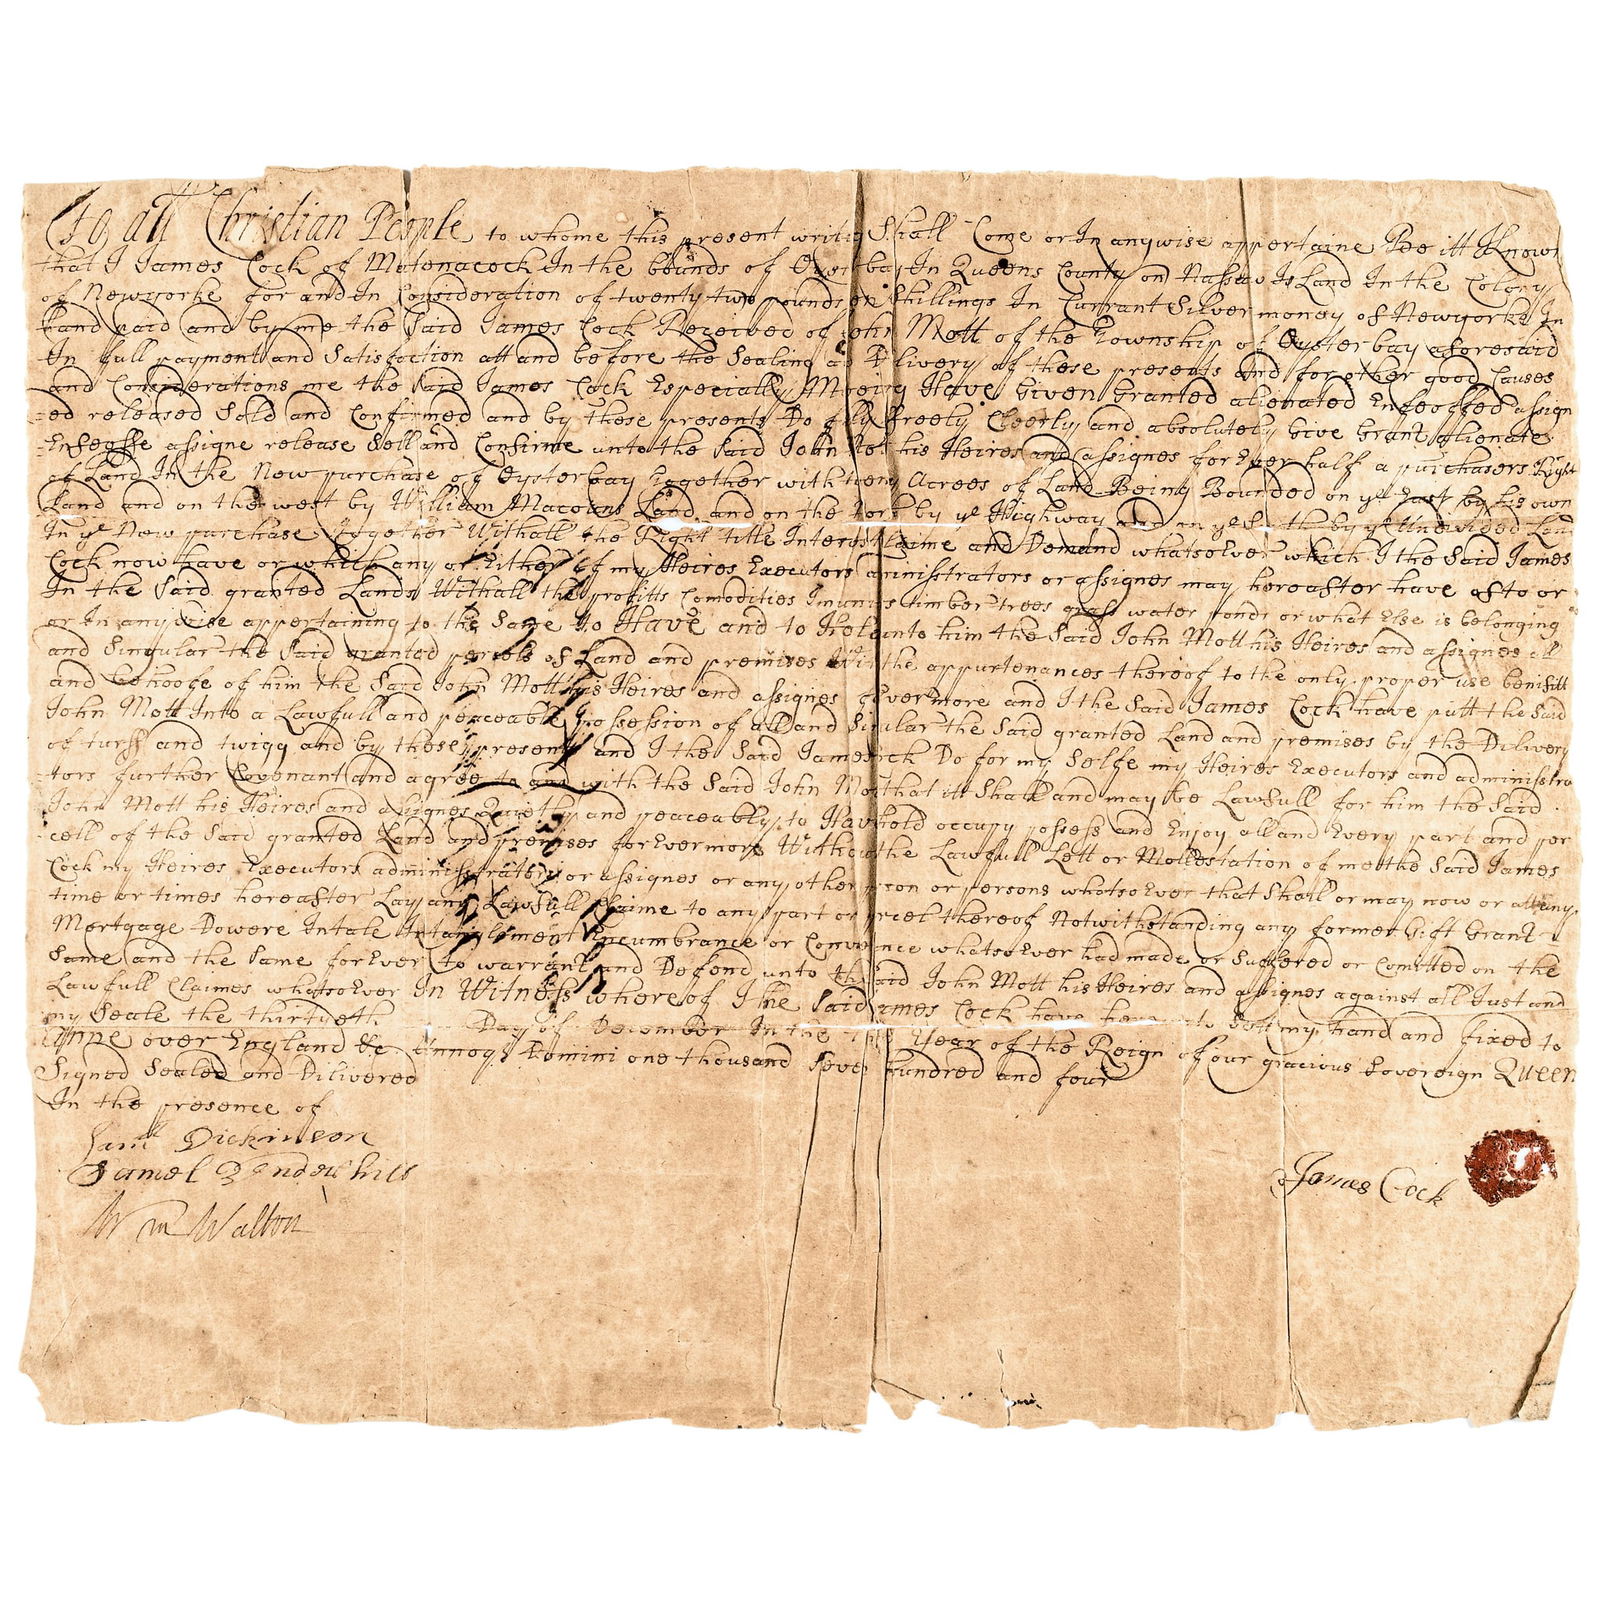 To all Christian People to whome this present writing Shall Come or In anywise appertaine Bee itt Known
that I James Cock of Matenacock In the bounds of Oysterbay In Queens County on Nassaw Island In the Colony
of Newyorke for and In Consideration of twenty two pounds Shillings In Currant Silver money of Newyorke In
hand paid and by me the Said James Cock Received of John Mott of the Township of Oysterbay aforesaid
In full payment and Satisfaction att and before the Sealing Delivery of these presents and for other good Causes
and Considerations me the Said James Cock Especially Moeving Have Given Granted alienated Enfeoffed assign
=ed released Sold and Confirmed and by these presents Do freely Cleerly and absolutely Give Grant alienate
Enfeoffe assigne release Sell and Confirme unto the Said John his Heires and assignes for Ever half a purchasers Right
of Land In the New purchase of Oysterbay together with Acrees of Land Being Bounded on ye East by his own
Land and on the west by William Land and on the by ye Highway and on ye by ye Undivided Land
In ye New purchase together Withall the Right title Interest Claime and Demand whatsoEver which I the Said James
Cock now have or which any or Either of my Heires Executors administrators or assignes may hereafter have of to or
In the Said granted Lands Withall the profitts Comodities timber trees grass water ponds or what Else is belonging
or In anywise appertaining to the Same to Have and to Hold unto him the Said John Mott his Heires and assignes all
and Singular the Said granted percels of Land and premises With the appurtenances thereof to the only proper use benifitt
and behoofe of him the Said John Mott his Heires and assignes forevermore and I the Said James Cock have putt the Said
John Mott Into a Lawfull and peaceable possession of all and Singular the Said granted Land and premises by the Dilivery
of turff and twigg and by these presents and I the Said James Cock Do for my Selfe my Heires Executors and administra
=tors further Covenant and agree to and with the Said John Mott that itt Shall and may be Lawfull for him the Said
John Mott his Heires and assignes Quietly and peaceably to Have hold occupy possess and Enjoy all and Every part and per
cell of the Said granted Land and premises forEvermore Without the Lawfull Lett or Mollestation of me the Said James
Cock my Heires Executors administrators or assignes or any other person or persons whatsoEver that Shall or may now or att any
time or times hereafter Lay any Lawfull Claime to any part or percel thereof Notwithstanding any former Gift Grant
Mortgage Dowere Intale Intanglement Incumbrance or Convaiance whatsoEver had made or Suffered or Comitted on the
Same and the Same forEver to warrant and Defend unto the Said John Mott his Heires and assignes against all Just and
Lawfull Claimes whatsoEver In Witness whereof I the Said James Cock have hereunto Sett my hand and fixed to
my Seale the thirtyeth Day of December In the Year of the Reign of our gracious Sovereign Queen
Anne over England &c Annoq Domini one thousand Seven hundred and four
Signed Sealed and Dilivered
In the presence of
Saml Dickinson
Samel
Wm Walton
James Cock